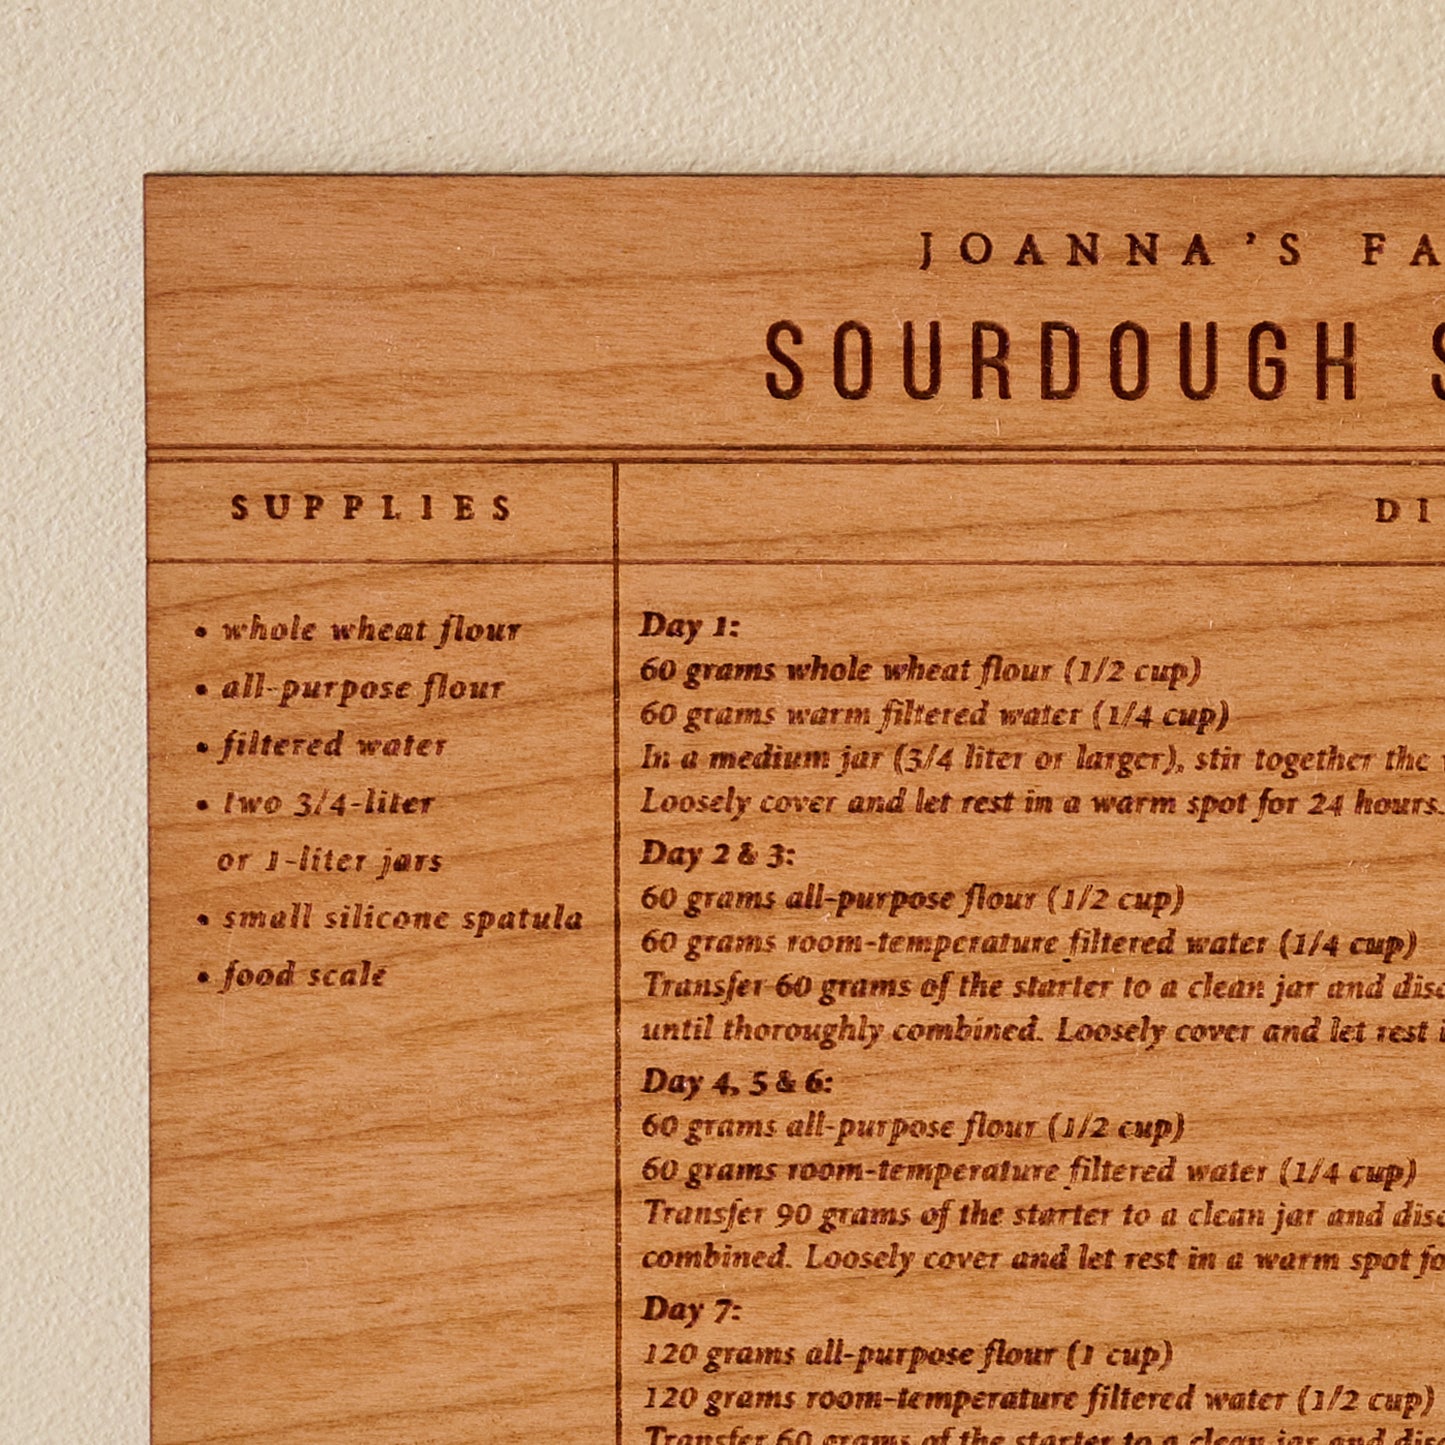 JOANNA'S FA
SOURDOUGH S
SUPPLIES
• whole wheat flour
• all-purpose flour
• filtered water
• two 3/4-liter
or 1-liter jars
• small silicone spatula
• food scale
DI
Day 1:
60 grams whole wheat flour (1/2 cup)
60 grams warm filtered water (1/4 cup)
In a medium jar (3/4 liter or larger), stir together the
Loosely cover and let rest in a warm spot for 24 hours.
Day 2 & 3:
60 grams all-purpose flour (1/2 cup)
60 grams room-temperature filtered water (1/4 cup)
Transfer 60 grams of the starter to a clean jar and disc
until thoroughly combined. Loosely cover and let rest
Day 4, 5 & 6:
60 grams all-purpose flour (1/2 cup)
60 grams room-temperature filtered water (1/4 cup)
Transfer 90 grams of the starter to a clean jar and disc
combined. Loosely cover and let rest in a warm spot fo
Day 7:
120 grams all-purpose flour (1 cup)
120 grams room-temperature filtered water (1/2 cup)
Transfer 60 grams of the starter to a clean jar and disc